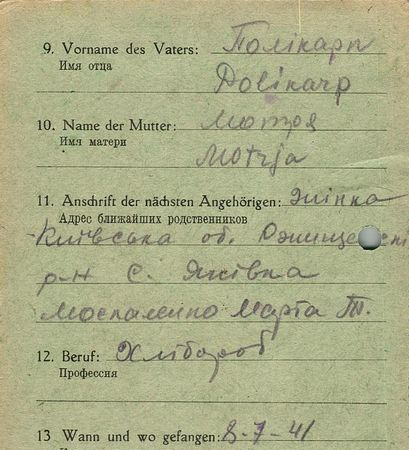 9. Vorname des Vaters: Полікарп
Имя отца
Polikarp
10. Name der Mutter: Мотря
Имя матери
Motrja
11. Anschrift der nächsten Angehörigen: жінка
Адрес ближайших родственников
Київська об.
р-н с. Яківка
Марта Т.
12. Beruf: Хлібороб
Профессия
13 Wann und wo gefangen: 8-7-41